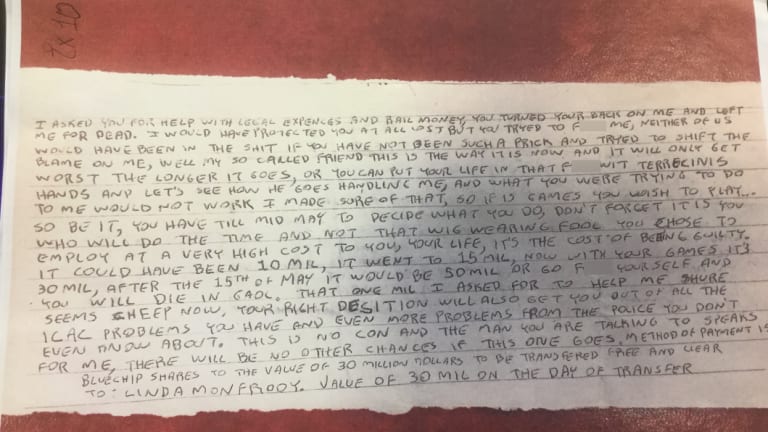 Ex 10
I ASKED YOU FOR HELP WITH LEGAL EXPENCES AND BAIL MONEY, YOU TURNED YOUR BACK ON ME AND LEFT
ME FOR DEAD. I WOULD HAVE PROTECTED YOU AT ALL COST BUT YOU TRYED TO F ME, NEITHER OF US
WOULD HAVE BEEN IN THE SHIT IF YOU HAVE NOT BEEN SUCH A PRICK AND TRYED TO SHIFT THE
BLAME ON ME, WELL MY SO CALLED FRIEND THIS IS THE WAY IT IS NOW AND IT WILL ONLY GET
WORST THE LONGER IT GOES, OR YOU CAN PUT YOUR LIFE IN THAT F WIT TERRECINIS
HANDS AND LET'S SEE HOW HE GOES HANDLING ME, AND WHAT YOU WERE TRYING TO DO
TO ME WOULD NOT WORK I MADE SORE OF THAT, SO IF IS GAMES YOU WISH TO PLAY...
SO BE IT, YOU HAVE TILL MID MAY TO DECIDE WHAT YOU DO, DON'T FORGET IT IS YOU
WHO WILL DO THE TIME AND NOT THAT WIG WEARING FOOL YOU CHOSE TO
EMPLOY AT A VERY HIGH COST TO YOU, YOUR LIFE, IT'S THE COST OF BEING GUILTY.
IT COULD HAVE BEEN 10 MIL, IT WENT TO 15 MIL, NOW WITH YOUR GAMES IT'S
30 MIL, AFTER THE 15TH OF MAY IT WOULD BE 50 MIL OR GO F YOURSELF AND
YOU WILL DIE IN GAOL. THAT ONE MIL I ASKED FOR TO HELP ME SHURE
SEEMS CHEEP NOW, YOUR RIGHT DESITION WILL ALSO GET YOU OUT OF ALL THE
ICAC PROBLEMS YOU HAVE AND EVEN MORE PROBLEMS FROM THE POLICE YOU DON'T
EVEN KNOW ABOUT. THIS IS NO CON AND THE MAN YOU ARE TALKING TO SPEAKS
FOR ME, THERE WILL BE NO OTHER CHANCES IF THIS ONE GOES. METHOD OF PAYMENT IS
BLUECHIP SHARES TO THE VALUE OF 30 MILLION DOLLARS TO BE TRANSFERED FREE AND CLEAR
TO: LINDA MONFRODY. VALUE OF 30 MIL ON THE DAY OF TRANSFER